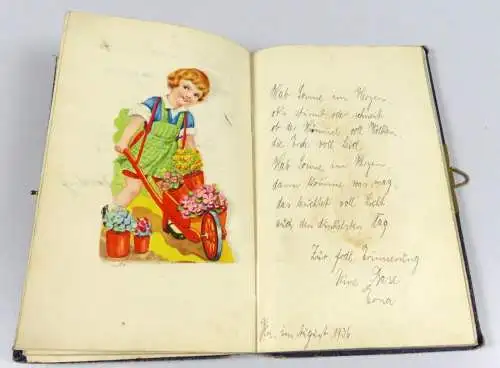 Hab Sonne im Herzen
ob's stürmt oder schneit
ob der Himmel voll Wolken
die Erde voll Streit.
Hab Sonne im Herzen
dann komme was mag,
das leuchtet voll Licht
auch den dunkelsten Tag
Zur frdl. Erinnerung
Deine Base
Erna
im August 1936